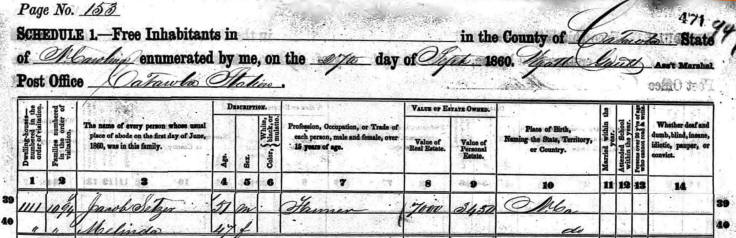 Page No. 153
471
SCHEDULE 1.—Free Inhabitants in in the County of Catawba State
of N. Carolina enumerated by me, on the 27th day of Sept 1860. Ass't Marshal.
Post Office Catawba Station.
Dwelling-houses—numbered in the order of visitation.
Families numbered in the order of visitation.
The name of every person whose usual place of abode on the first day of June, 1860, was in this family.
DESCRIPTION.
Age.
Sex.
Color, White, black, or mulatto.
Profession, Occupation, or Trade of each person, male and female, over 15 years of age.
VALUE OF ESTATE OWNED.
Value of Real Estate.
Value of Personal Estate.
Place of Birth, Naming the State, Territory, or Country.
Married within the year.
Attended School within the year.
Whether deaf and dumb, blind, insane, idiotic, pauper, or convict.
1 2 3 4 5 6 7 8 9 10 11 12 13 14
39 1111 Jacob Setzer 51 m Farmer 7000 3450 N Ca 39
40 " " Melinda 47 f do 40